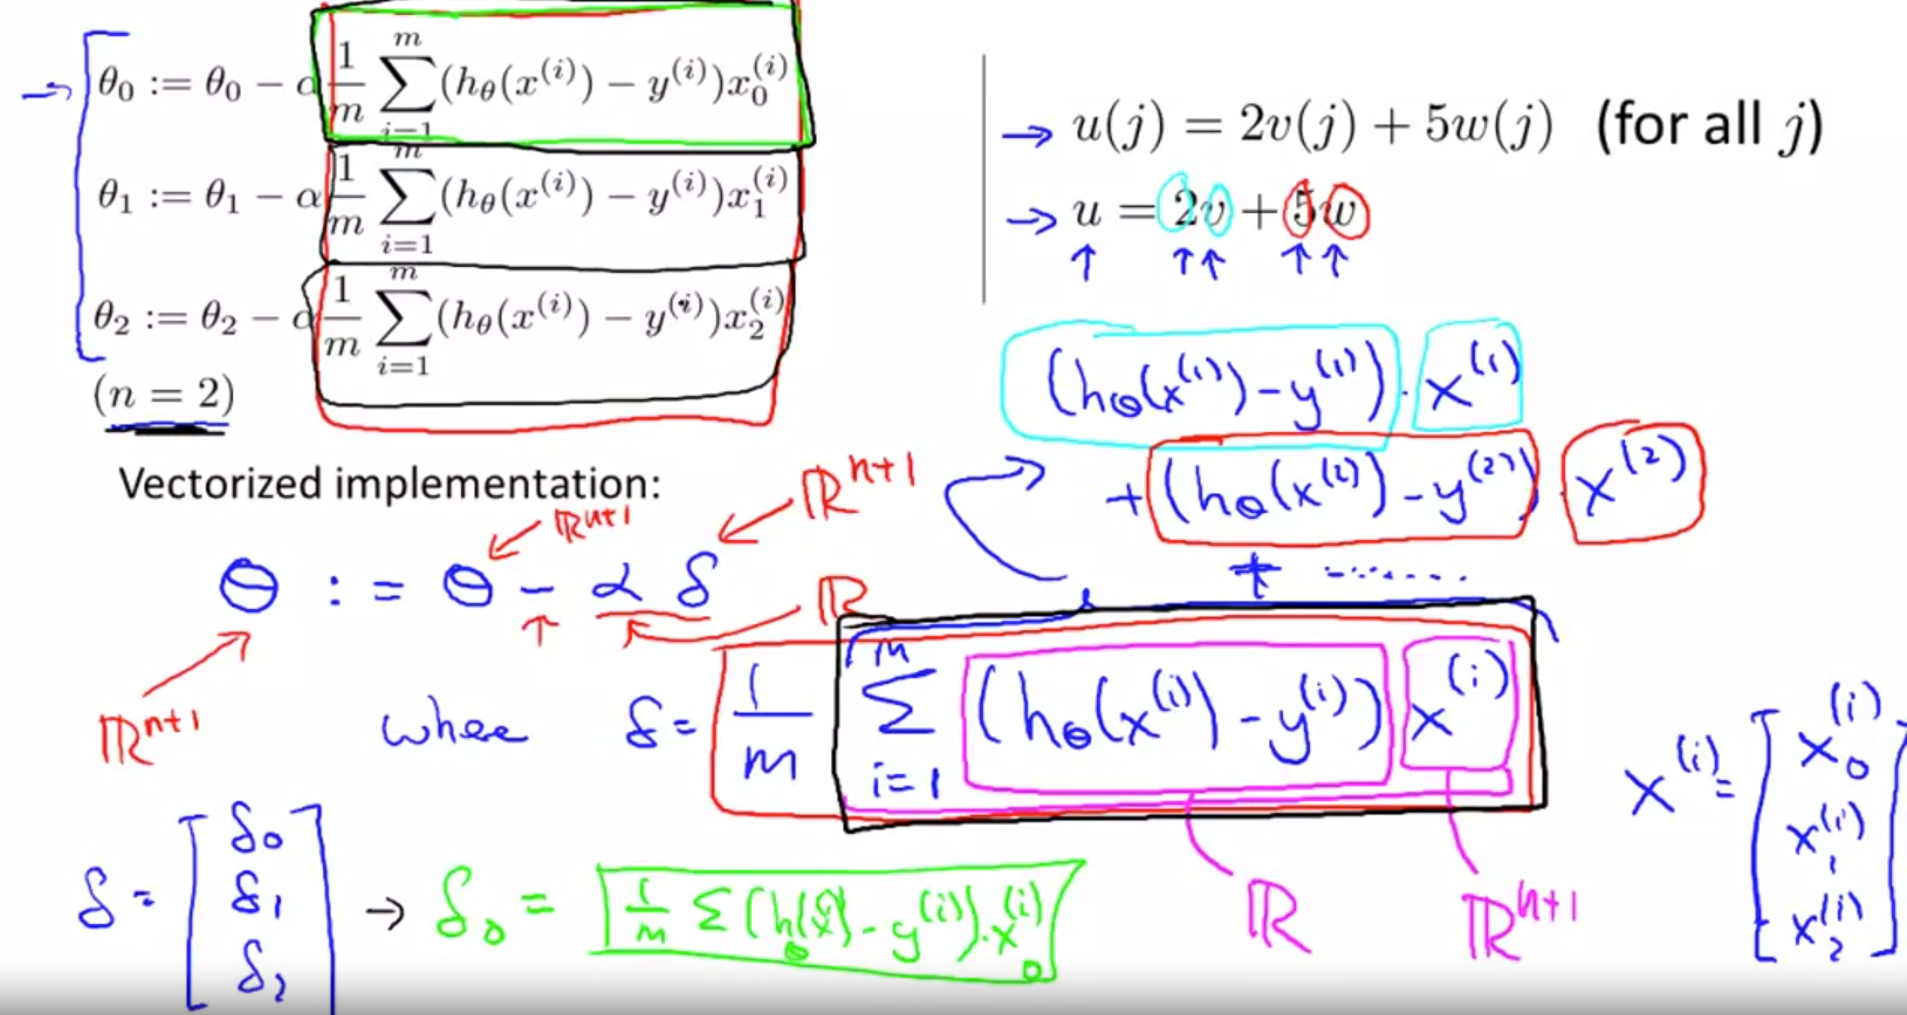 θ₀ := θ₀ − α 1/m ∑_{i=1}^{m} (h_θ(x^{(i)}) − y^{(i)})x_0^{(i)}
θ₁ := θ₁ − α 1/m ∑_{i=1}^{m} (h_θ(x^{(i)}) − y^{(i)})x_1^{(i)}
θ₂ := θ₂ − α 1/m ∑_{i=1}^{m} (h_θ(x^{(i)}) − y^{(i)})x_2^{(i)}
(n = 2)
→ u(j) = 2v(j) + 5w(j) (for all j)
→ u = 2v + 5w
(h_θ(x^{(1)}) − y^{(1)}) · x^{(1)}
+ (h_θ(x^{(2)}) − y^{(2)}) · x^{(2)}
+ ·······
Vectorized implementation:
ℝ^{n+1} ℝ^{n+1}
Θ := Θ − α δ
ℝ
ℝ^{n+1}
where δ = 1/m ∑_{i=1}^{m} (h_θ(x^{(i)}) − y^{(i)}) x^{(i)}
ℝ ℝ^{n+1}
x^{(i)} = [x_0^{(i)} x_1^{(i)} x_2^{(i)}]
δ = [δ₀ δ₁ δ₂] → δ₀ = 1/m ∑ (h_θ(x^{(i)}) − y^{(i)}) · x_0^{(i)}